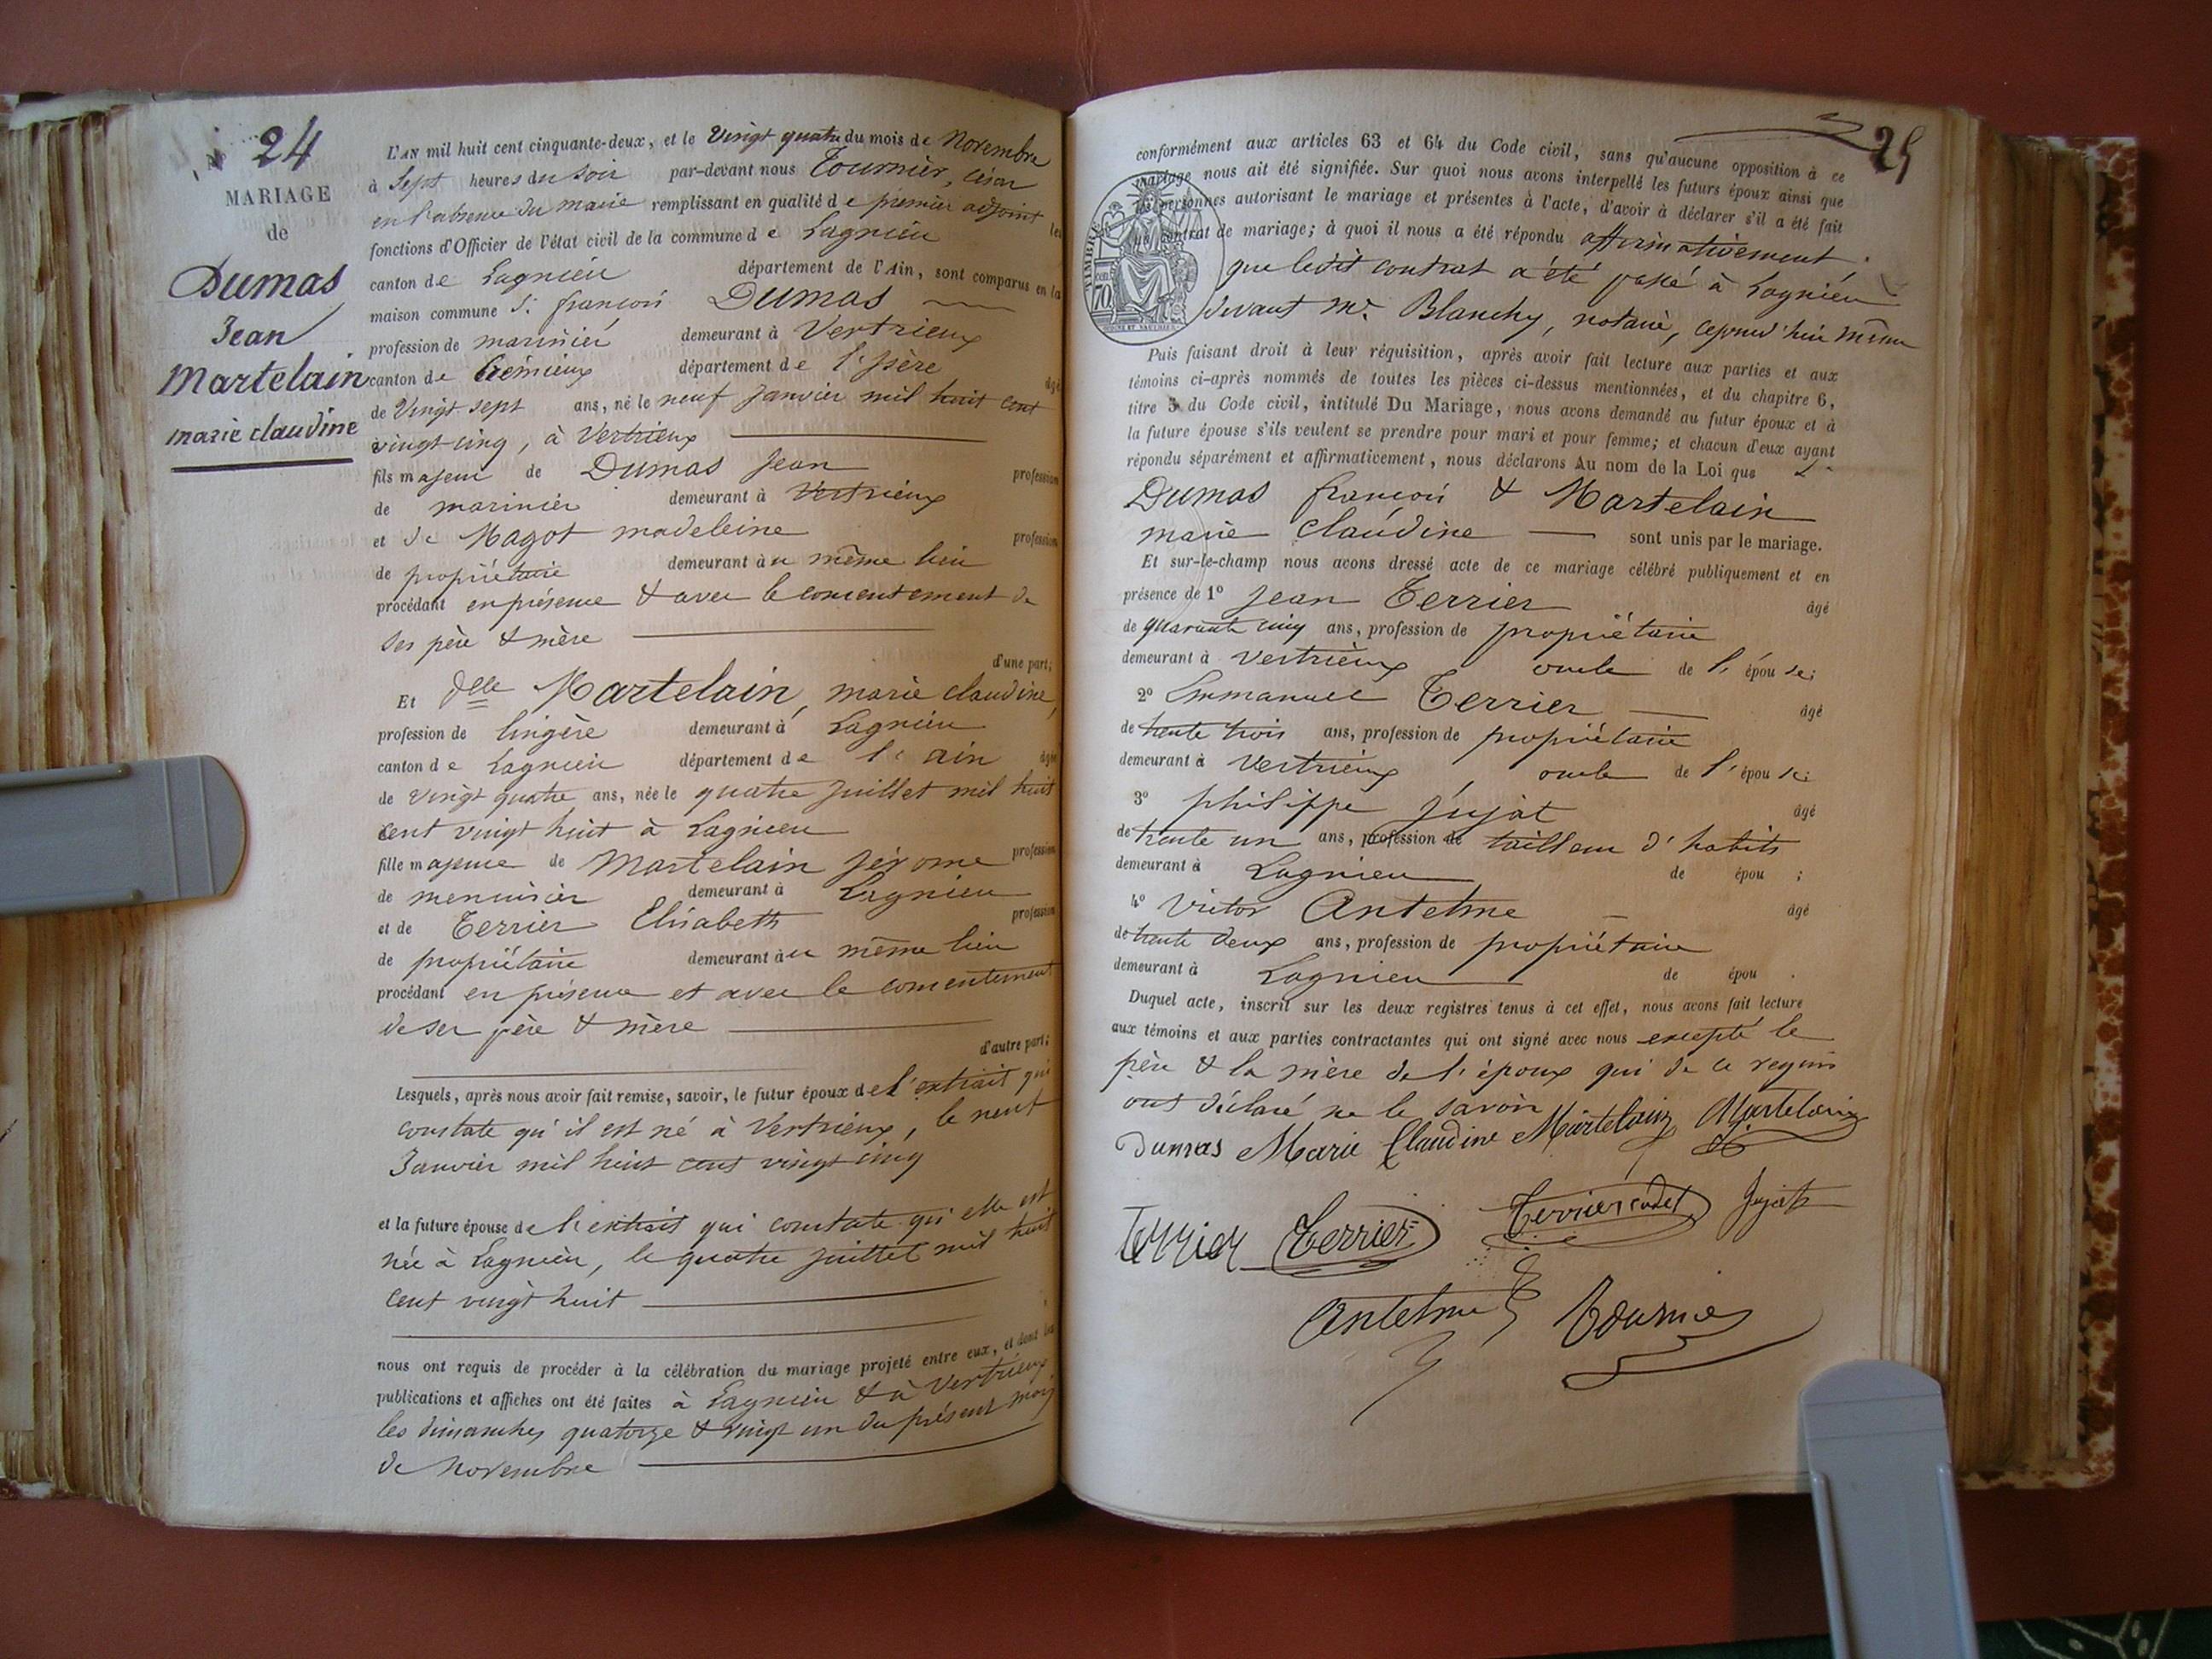 N° 24
MARIAGE
de
Dumas
Jean
Martelain
marie claudine
L'AN mil huit cent cinquante-deux, et le Vingt quatre du mois de Novembre
à Sept heures du soir par-devant nous Tournier, César
en l'absence du maire remplissant en qualité de premier adjoint les
fonctions d'Officier de l'état civil de la commune de Lagnieu
canton de Lagnieu département de l'Ain, sont comparus en la
maison commune Sr. françois Dumas
profession de marinier demeurant à Vertrieux
canton de Crémieux département de l'Isère âgé
de Vingt sept ans, né le neuf Janvier mil huit cent
vingt cinq, à Vertrieux
fils majeur de Dumas Jean profession
de marinier demeurant à Vertrieux
et de Magot madeleine profession
de propriétaire demeurant au même lieu
procédant en présence & avec le consentement de
ses père & mère
d'une part;
Et Delle Martelain, marie claudine,
profession de lingère demeurant à Lagnieu
canton de Lagnieu département de l'ain âgée
de vingt quatre ans, née le quatre juillet mil huit
cent vingt huit à Lagnieu
fille majeure de Martelain Jérome profession
de menuisier demeurant à Lagnieu
et de Terrier Elisabeth profession
de propriétaire demeurant au même lieu
procédant en présence et avec le consentement
de ses père & mère
d'autre part;
Lesquels, après nous avoir fait remise, savoir, le futur époux de l'extrait qui
constate qu'il est né à Vertrieux, le neuf
Janvier mil huit cent vingt cinq
et la future épouse de l'extrait qui constate qu'elle est
née à Lagnieu, le quatre juillet mil huit
cent vingt huit
nous ont requis de procéder à la célébration du mariage projeté entre eux, et dont les
publications et affiches ont été faites à Lagnieu & à Vertrieux
les dimanches quatorze & vingt un du présent mois
de Novembre
25
conformément aux articles 63 et 64 du Code civil, sans qu'aucune opposition à ce
mariage nous ait été signifiée. Sur quoi nous avons interpellé les futurs époux ainsi que
les personnes autorisant le mariage et présentes à l'acte, d'avoir à déclarer s'il a été fait
un contrat de mariage; à quoi il nous a été répondu affirmativement.
que ledit contrat a été passé à Lagnieu
devant Me. Blanchy, notaire, cejourd'hui même
TIMBRE
70
Puis faisant droit à leur réquisition, après avoir fait lecture aux parties et aux
témoins ci-après nommés de toutes les pièces ci-dessus mentionnées, et du chapitre 6,
titre 5 du Code civil, intitulé Du Mariage, nous avons demandé au futur époux et à
la future épouse s'ils veulent se prendre pour mari et pour femme; et chacun d'eux ayant
répondu séparément et affirmativement, nous déclarons Au nom de la Loi que
Dumas françois & Martelain
marie claudine sont unis par le mariage.
Et sur-le-champ nous avons dressé acte de ce mariage célébré publiquement et en
présence de 1° Jean Terrier âgé
de quarante cinq ans, profession de propriétaire
demeurant à Vertrieux oncle de l'épouse;
2° Emmanuel Terrier âgé
de trente trois ans, profession de propriétaire
demeurant à Vertrieux oncle de l'épouse:
3° philippe Jujat âgé
de trente un ans, profession de tailleur d'habits
demeurant à Lagnieu de épou ;
4° Victor Antelme âgé
de trente deux ans, profession de propriétaire
demeurant à Lagnieu de épou .
Duquel acte, inscrit sur les deux registres tenus à cet effet, nous avons fait lecture
aux témoins et aux parties contractantes qui ont signé avec nous excepté le
père & la mère de l'époux qui de ce requis
ont déclaré ne le savoir
Dumas Marie Claudine Martelain Martelain
Terrier Terrier Terrier cadet Jujat
Antelme Tournier